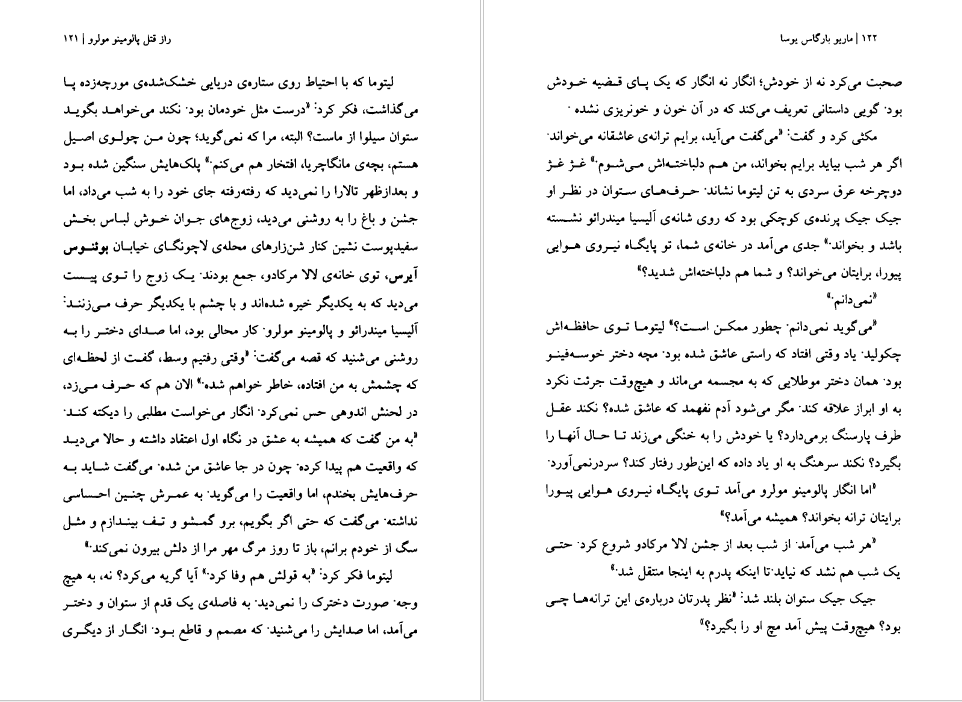 راز قتل پالومینو مولرو | ۱۲۱
لیتوما که با احتیاط روی ستاره‌ی دریایی خشک‌شده‌ی مورچه‌زده پا
می‌گذاشت، فکر کرد: «درست مثل خودمان بود. نکند می‌خواهد بگوید
ستوان سیلوا از ماست؟ البته، مرا که نمی‌گوید؛ چون من چولوی اصیل
هستم، بچه‌ی مانگاچریا، افتخار هم می‌کنم.» پلک‌هایش سنگین شده بود
و بعدازظهر تالارا را نمی‌دید که رفته‌رفته جای خود را به شب می‌داد، اما
جشن و باغ را به روشنی می‌دید، زوج‌های جوان خوش لباس بخش
سفیدپوست نشین کنار شن‌زارهای محله‌ی لاچونگای خیابان بوئنوس
آیرس، توی خانه‌ی لالا مرکادو، جمع بودند. یک زوج را توی پیست
می‌دید که به یکدیگر خیره شده‌اند و با چشم با یکدیگر حرف می‌زنند:
آلیسیا میندرائو و پالومینو مولرو. کار محالی بود، اما صدای دختر را به
روشنی می‌شنید که قصه می‌گفت: «وقتی رفتیم وسط، گفت از لحظه‌ای
که چشمش به من افتاده، خاطر خواهم شده.» الان هم که حرف می‌زد،
در لحنش اندوهی حس نمی‌کرد. انگار می‌خواست مطلبی را دیکته کند.
«به من گفت که همیشه به عشق در نگاه اول اعتقاد داشته و حالا می‌دید
که واقعیت هم پیدا کرده. چون در جا عاشق من شده. می‌گفت شاید به
حرف‌هایش بخندم، اما واقعیت را می‌گوید. به عمرش چنین احساسی
نداشته. می‌گفت که حتی اگر بگویم، برو گمشو و تف بیندازم و مثل
سگ از خودم برانم، باز تا روز مرگ مهر مرا از دلش بیرون نمی‌کند.»
لیتوما فکر کرد: «به قولش هم وفا کرد.» آیا گریه می‌کرد؟ نه، به هیچ
وجه. صورت دخترک را نمی‌دید. به فاصله‌ی یک قدم از ستوان و دختر
می‌آمد، اما صدایش را می‌شنید. که مصمم و قاطع بود. انگار از دیگری
۱۲۲ | ماریو بارگاس یوسا
صحبت می‌کرد نه از خودش؛ انگار نه انگار که یک پای قضیه خودش
بود. گویی داستانی تعریف می‌کند که در آن خون و خونریزی نشده .
مکثی کرد و گفت: «می‌گفت می‌آید، برایم ترانه‌ی عاشقانه می‌خواند.
اگر هر شب بیاید برایم بخواند، من هم دلباخته‌اش می‌شوم.» غژ غژ
دوچرخه عرق سردی به تن لیتوما نشاند. حرف‌های ستوان در نظر او
جیک جیک پرنده‌ی کوچکی بود که روی شانه‌ی آلیسیا میندرائو نشسته
باشد و بخواند.» جدی می‌آمد در خانه‌ی شما، تو پایگاه نیروی هوایی
پیورا، برایتان می‌خواند؟ و شما هم دلباخته‌اش شدید؟»
«نمی‌دانم.»
«می‌گوید نمی‌دانم. چطور ممکن است؟» لیتوما توی حافظه‌اش
چکولید. یاد وقتی افتاد که راستی عاشق شده بود. مچه دختر خوسه‌فینو
بود. همان دختر موطلایی که به مجسمه می‌ماند و هیچ‌وقت جرئت نکرد
به او ابراز علاقه کند. مگر می‌شود آدم نفهمد که عاشق شده؟ نکند عقل
طرف پارسنگ برمی‌دارد؟ یا خودش را به خنگی می‌زند تا حال آنها را
بگیرد؟ نکند سرهنگ به او یاد داده که این‌طور رفتار کند؟ سردرنمی‌آورد.
«اما انگار پالومینو مولرو می‌آمد توی پایگاه نیروی هوایی پیورا
برایتان ترانه بخواند؟ همیشه می‌آمد؟»
«هر شب می‌آمد. از شب بعد از جشن لالا مرکادو شروع کرد. حتی
یک شب هم نشد که نیاید.تا اینکه پدرم به اینجا منتقل شد.»
جیک جیک ستوان بلند شد: «نظر پدرتان درباره‌ی این ترانه‌ها چی
بود؟ هیچ‌وقت پیش آمد مچ او را بگیرد؟»